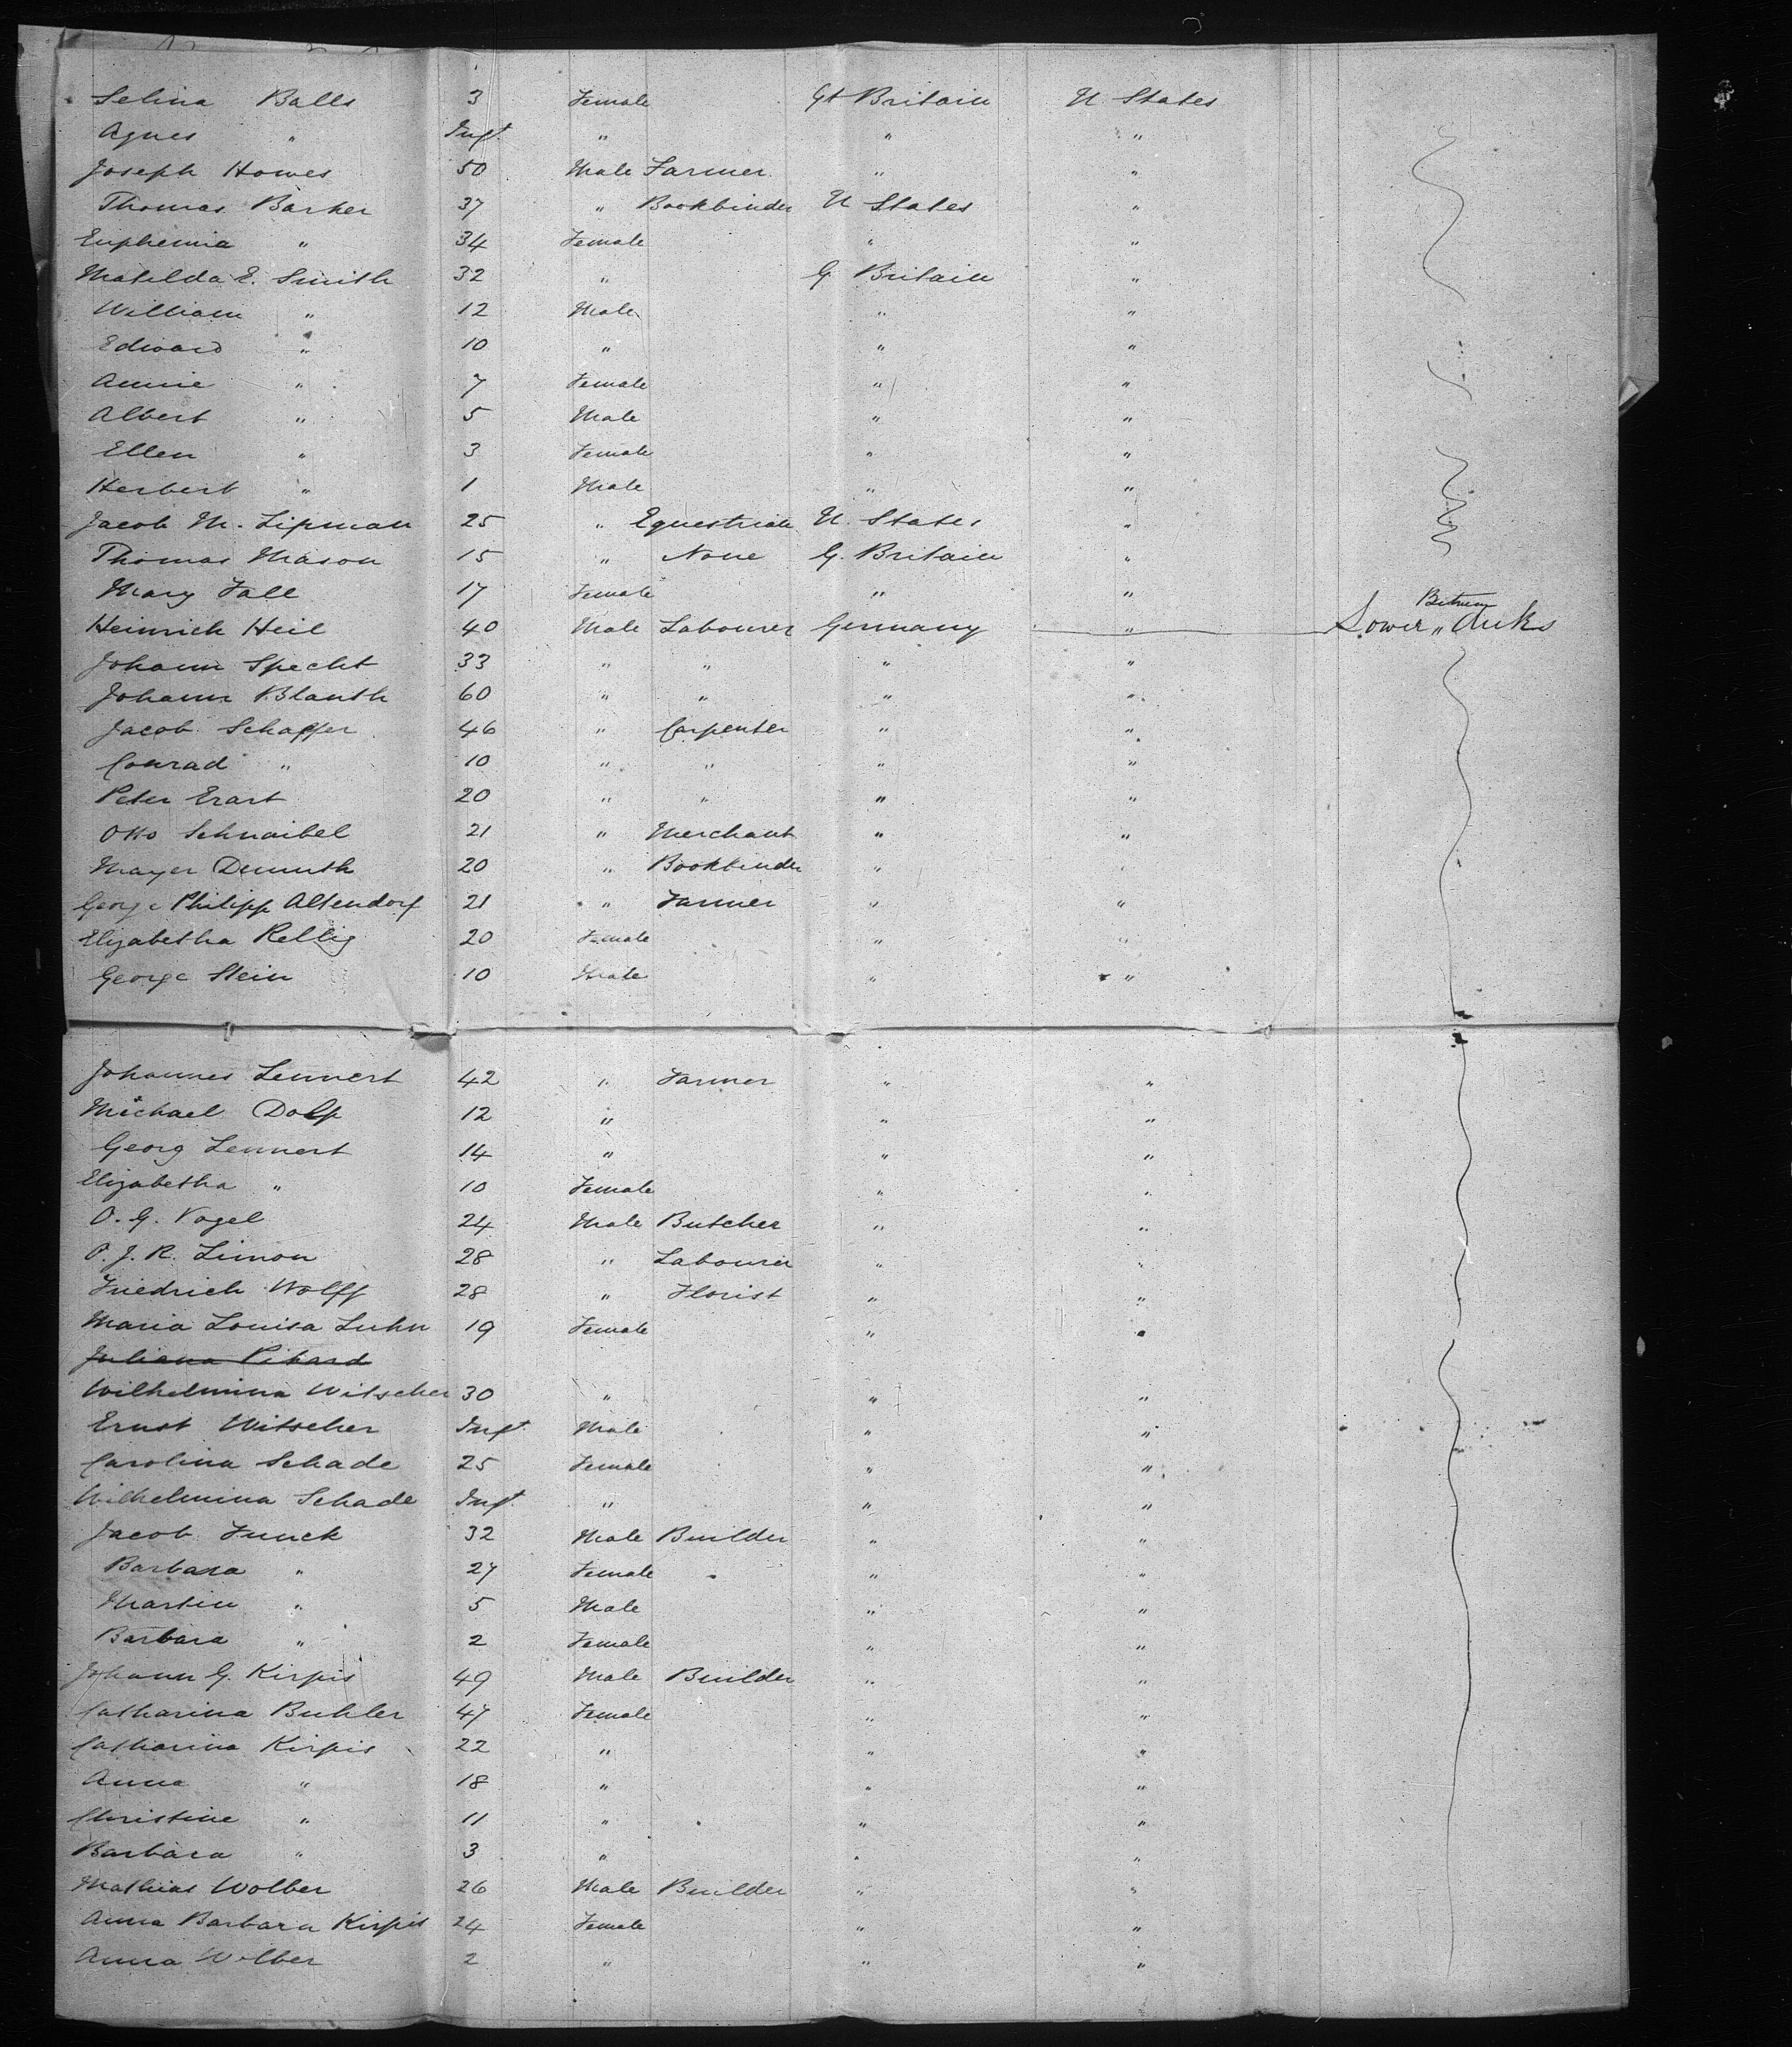 Selina Balls 3 Female Gt Britain U States
Agnes " Inft. " " "
Joseph Howes 50 Male Farmer " "
Thomas Barker 37 " Bookbinder U States "
Euphemia " 34 Female " "
Matilda E. Smith 32 " G. Britain "
William " 12 Male " "
Edward " 10 " " "
Annie " 7 Female " "
Albert " 5 Male " "
Ellen " 3 Female " "
Herbert " 1 Male " "
Jacob M. Lipman 25 " Equestrian U. States "
Thomas Mason 15 " None G. Britain "
Mary Fall 17 Female " "
Heinrich Heil 40 Male Labourer Germany " Lower "
Johann Specht 33 " " " "
Johann Blauth 60 " " " "
Jacob Schaffer 46 " Carpenter " "
Conrad " 10 " " " "
Peter Erart 20 " " " "
Otto Schnaibel 21 " Merchant " "
Mayer Demuth 20 " Bookbinder " "
George Philipp Altendorf 21 " Farmer " "
Elizabetha Rellig 20 Female " "
George Stein 10 Male " "
Johannes Lennert 42 " Farmer " "
Michael Dolf 12 " " "
Georg Lennert 14 " " "
Elizabetha " 10 Female " "
O. G. Vogel 24 Male Butcher " "
P. J. R. Limon 28 " Labourer " "
Friedrich Wolff 28 " Florist " "
Maria Louisa Luhn 19 Female " "
Juliana Pikard
Wilhelmina Witscher 30 " " "
Ernst Witscher Inft. Male " "
Carolina Schade 25 Female " "
Wilhelmina Schade Inft. " " "
Jacob Funck 32 Male Builder " "
Barbara " 27 Female " "
Martin " 5 Male " "
Barbara " 2 Female " "
Johann G. Kirpis 49 Male Builder " "
Catharina Buhler 47 Female " "
Catharina Kirpis 22 " " "
Anna " 18 " " "
Christine " 11 " " "
Barbara " 3 " " "
Mathias Wolber 26 Male Builder " "
Anna Barbara Kirpis 24 Female " "
Anna Wolber 2 " " "